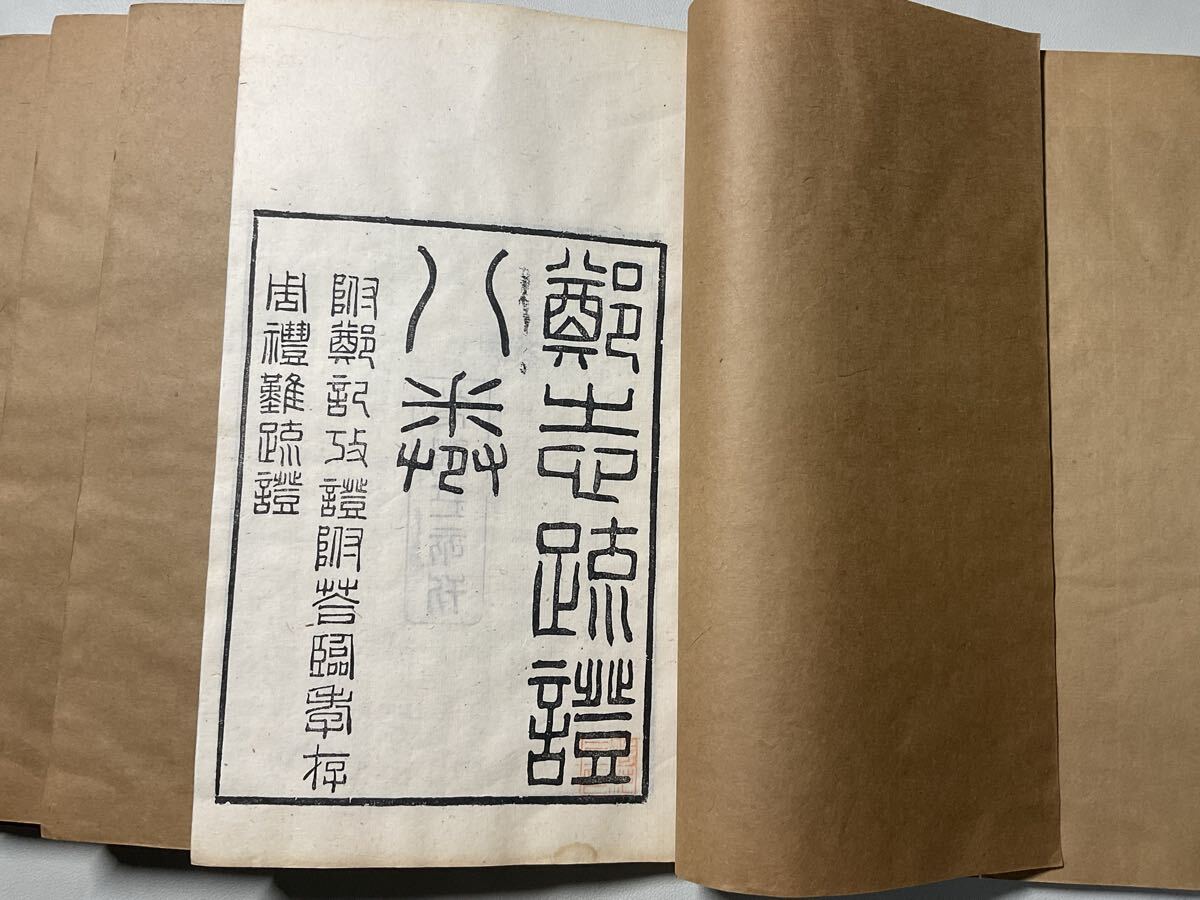 鄭志疏證
八卷
附鄭記攷證附荅臨孝存
周禮難疏證